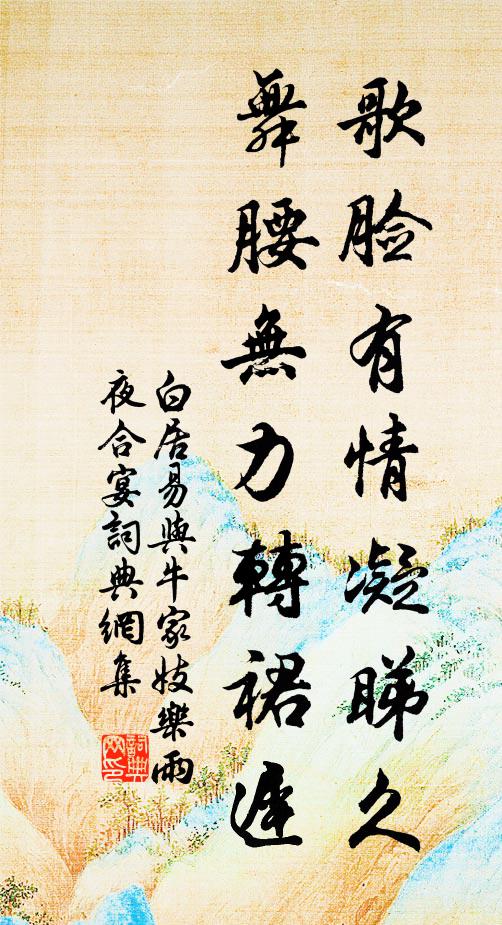 歌臉有情凝睇久
舞腰無力轉裙遲
白居易與牛家妓樂雨
夜合宴詞典網集
詞典
网印